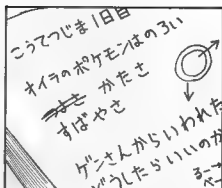 こうてつじま1日目
オイラのポケモンはのろい
かたさ
すばやさ
ゲンさんからいわれた
どうしたらいいのか
る